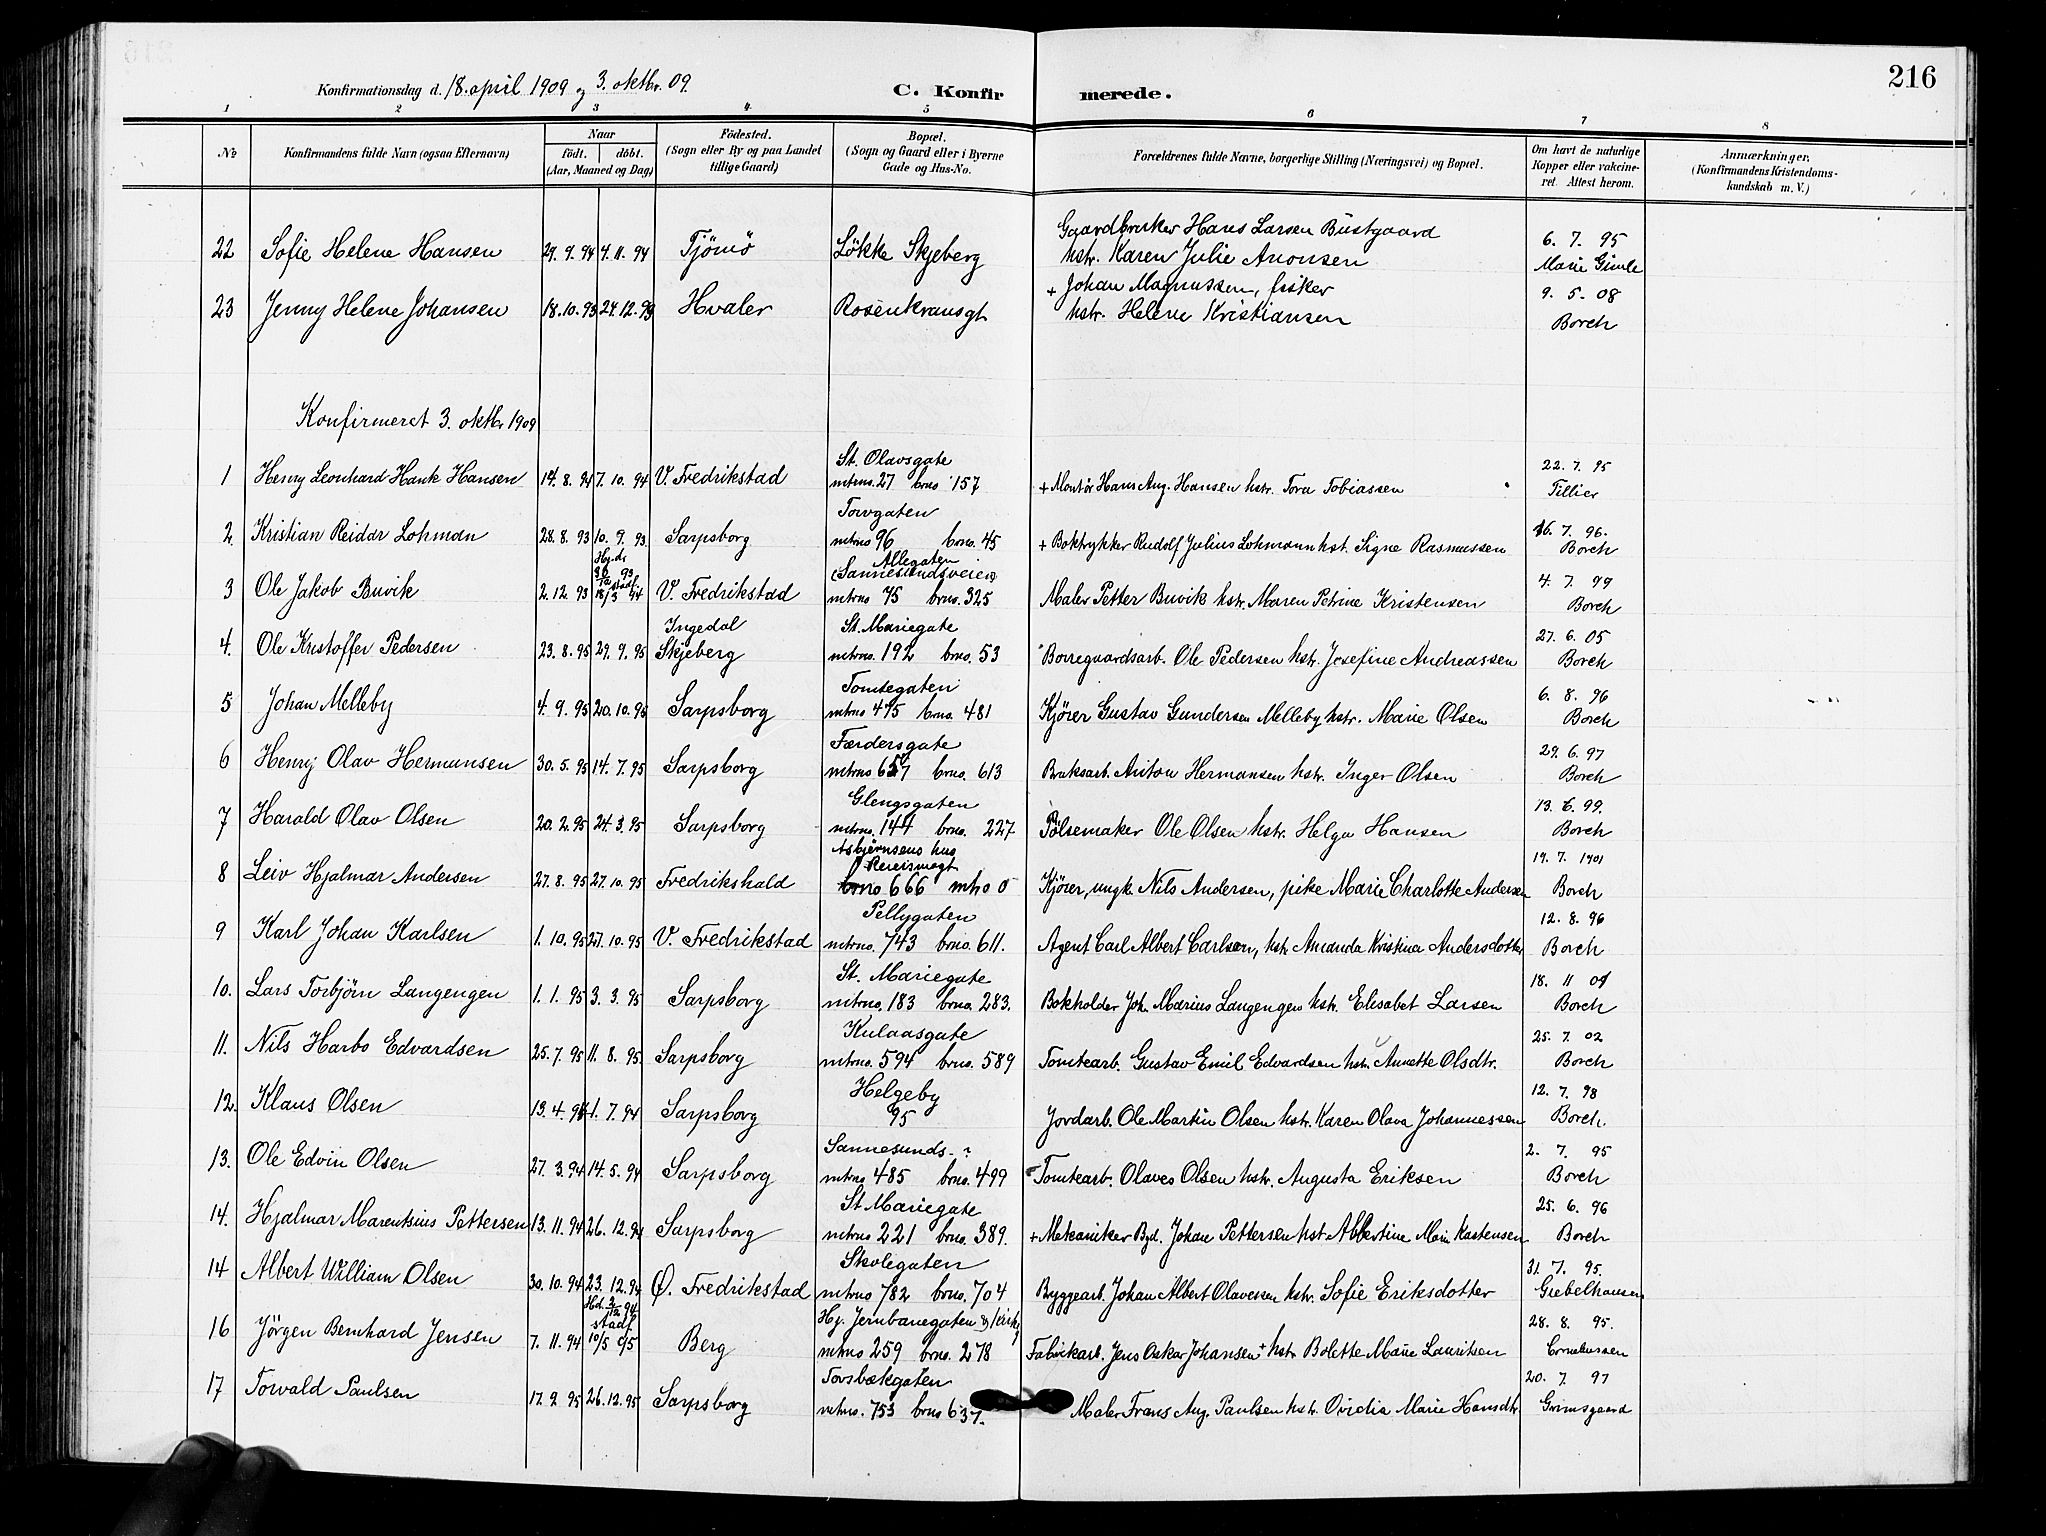 216
Konfirmationsdag d. 18. april 1909 og 3. oktbr. 09.
C. Konfirmerede.
1 2 3 4 5 6 7 8
No
Konfirmandens fulde Navn (ogsaa Efternavn)
Naar
födt. döbt.
(Aar, Maaned og Dag)
Födested.
(Sogn eller By og paa Landet
tillige Gaard)
Bopæl.
(Sogn og Gaard eller i Byerne
Gade og Hus-No.
Forældrenes fulde Navne, borgerlige Stilling (Næringsvei) og Bopæl.
Om havt de naturlige
Kopper eller vakcine-
ret. Attest herom.
Anmærkninger.
(Konfirmandens Kristendoms-
kundskab m. V.)
Gaardbruker Hans Larsen Bustgaard
22 Sofie Helene Hansen 29. 9. 94 4. 11. 94 Tjömö Lökke Skjeberg hstr. Karen Julie Anonsen 6. 7. 95 Marie Gimle
+ Johan Magnussen, fisker
23 Jenny Helene Johansen 18. 10. 93 24. 12. 93 Hvaler Rosenkransgt hstr. Helene Kristiansen 9. 5. 08 Borch
Konfirmeret 3. oktbr 1909
St. Olavsgate
1 Henry Leonhard Hank Hansen 14. 8. 94 7. 10. 94 V. Fredrikstad mtrno. 27 brno 157 + Montör Hans Aug. Hansen hstr. Tora Tobiassen 22. 7. 95 Tillier
Torvgaten
2. Kristian Reidar Lohman 28. 8. 93 10. 9. 93. Sarpsborg mtrno 96 brno. 45 + Boktrykker Rudolf Julius Lohmann hst. Signe Rasmussen 16. 7. 96. Borch
Hj.d. 93 stadf. 18/3 94
Allegaten
(Sannesundsveien)
3 Ole Jakob Buvik 2. 12. 93 V. Fredrikstad mtrno 75 brno. 325 Maler Petter Buvik hstr. Maren Petrine Kristensen 4. 7. 99 Borch
Ingedal St. Mariegate
4. Ole Kristoffer Pedersen 23. 8. 95 29. 9. 95 Skjeberg mtrno. 192 brno. 53 Borregaardsarb. Ole Pedersen hstr. Josefine Andreassen 27. 6. 05 Borch
Tomtegaten
5 Johan Melleby 4. 9. 95 20. 10. 95 Sarpsborg mtrno 475 brno. 481 Kjörer Gustav Gundersen Melleby hstr. Marie Olsen 6. 8. 96 Borch
Færdersgate
6 Henry Olav Hermansen 30. 5. 95 14. 7. 95 Sarpsborg mtrno 657 brno. 613 Bruksarb. Anton Hermansen hstr. Inger Olsen 29. 6. 97 Borch
Glengsgaten
7 Harald Olav Olsen 20. 2. 95 24. 3. 95 Sarpsborg mtrno. 144 brno. 227. Pölsemaker Ole Olsen hstr. Helga Hansen 13. 6. 99. Borch
Asbjörnsens hus
8 Leiv Hjalmar Andersen 27. 8. 95 27. 10. 95 Fredrikshald brno 666 mtr o Kjörer, ungk. Nils Andersen, pike Marie Charlotte Andersen 19. 7. 1901 Borch
Pellygaten
9 Karl Johan Karlsen 1. 10. 95 27. 10. 95 V. Fredrikstad mtrno. 743 brno. 611. Agent Carl Albert Carlson, hstr Amanda Kristina Andersdotter 12. 8. 96 Borch
St. Mariegate
10. Lars Torbjörn Langengen 1. 1. 95 3. 3. 95 Sarpsborg mtrno. 183 brno. 283. Bokholder Joh. Marius Langengen hstr. Elisabet Larsen 18. 11 Borch
Kulaasgate
11. Nils Harbo Edvardsen 25. 7. 95 11. 8. 95 Sarpsborg mtrno. 594 brno. 589 Tomtearb. Gustav Emil Edvardsen hstr. Annette Olsdtr. 25. 7. 02 Borch
Helgeby
12. Klaus Olsen 13. 4. 94 1. 7. 94 Sarpsborg 95 Jordarb. Ole Martin Olsen hstr. Karen Olava Johannessen 12. 7. 98 Borch.
Sannesunds-?
13. Ole Edvin Olsen 27. 3. 94 14. 5. 94 Sarpsborg mtrno 485 brno. 499 Tomtearb. Olaves Olsen hstr. Augusta Eriksen 2. 7. 95 Borch
St. Mariegate
14. Hjalmar Marentsius Pettersen 13. 11. 94 26. 12. 94 Sarpsborg mtrno 221 brno. 389. + Mekaniker Byd. Johan Pettersen hst Albertine Marie Karstensen 25. 6. 96 Borch
Skolegaten
14 Albert William Olsen 30. 10. 94 23. 12. 94 Ø. Fredrikstad mtrno 782 brno. 704 Byggearb. Johan Albert Olavesen hstr. Sofie Eriksdotter 31. 7. 95. Giebelhausen
stadf. 10/5 95
Hj. Jernbanegaten
16 Jörgen Bernhard Jensen 7. 11. 94 Berg mtrno 259 brno. 278 Fabrikarb. Jens Oskar Johansen + hstr Bolette Marie Lauritsen 28. 8. 95. Corneliussen
Torsbækgaten
17 Torvald Paulsen 17. 9. 95 26. 12. 95 Sarpsborg mtrno. 753 brno 637. Maler Frans Aug. Paulsen hstr. Ovidia Marie Hansdtr. 20. 7. 97 Grimsgaard